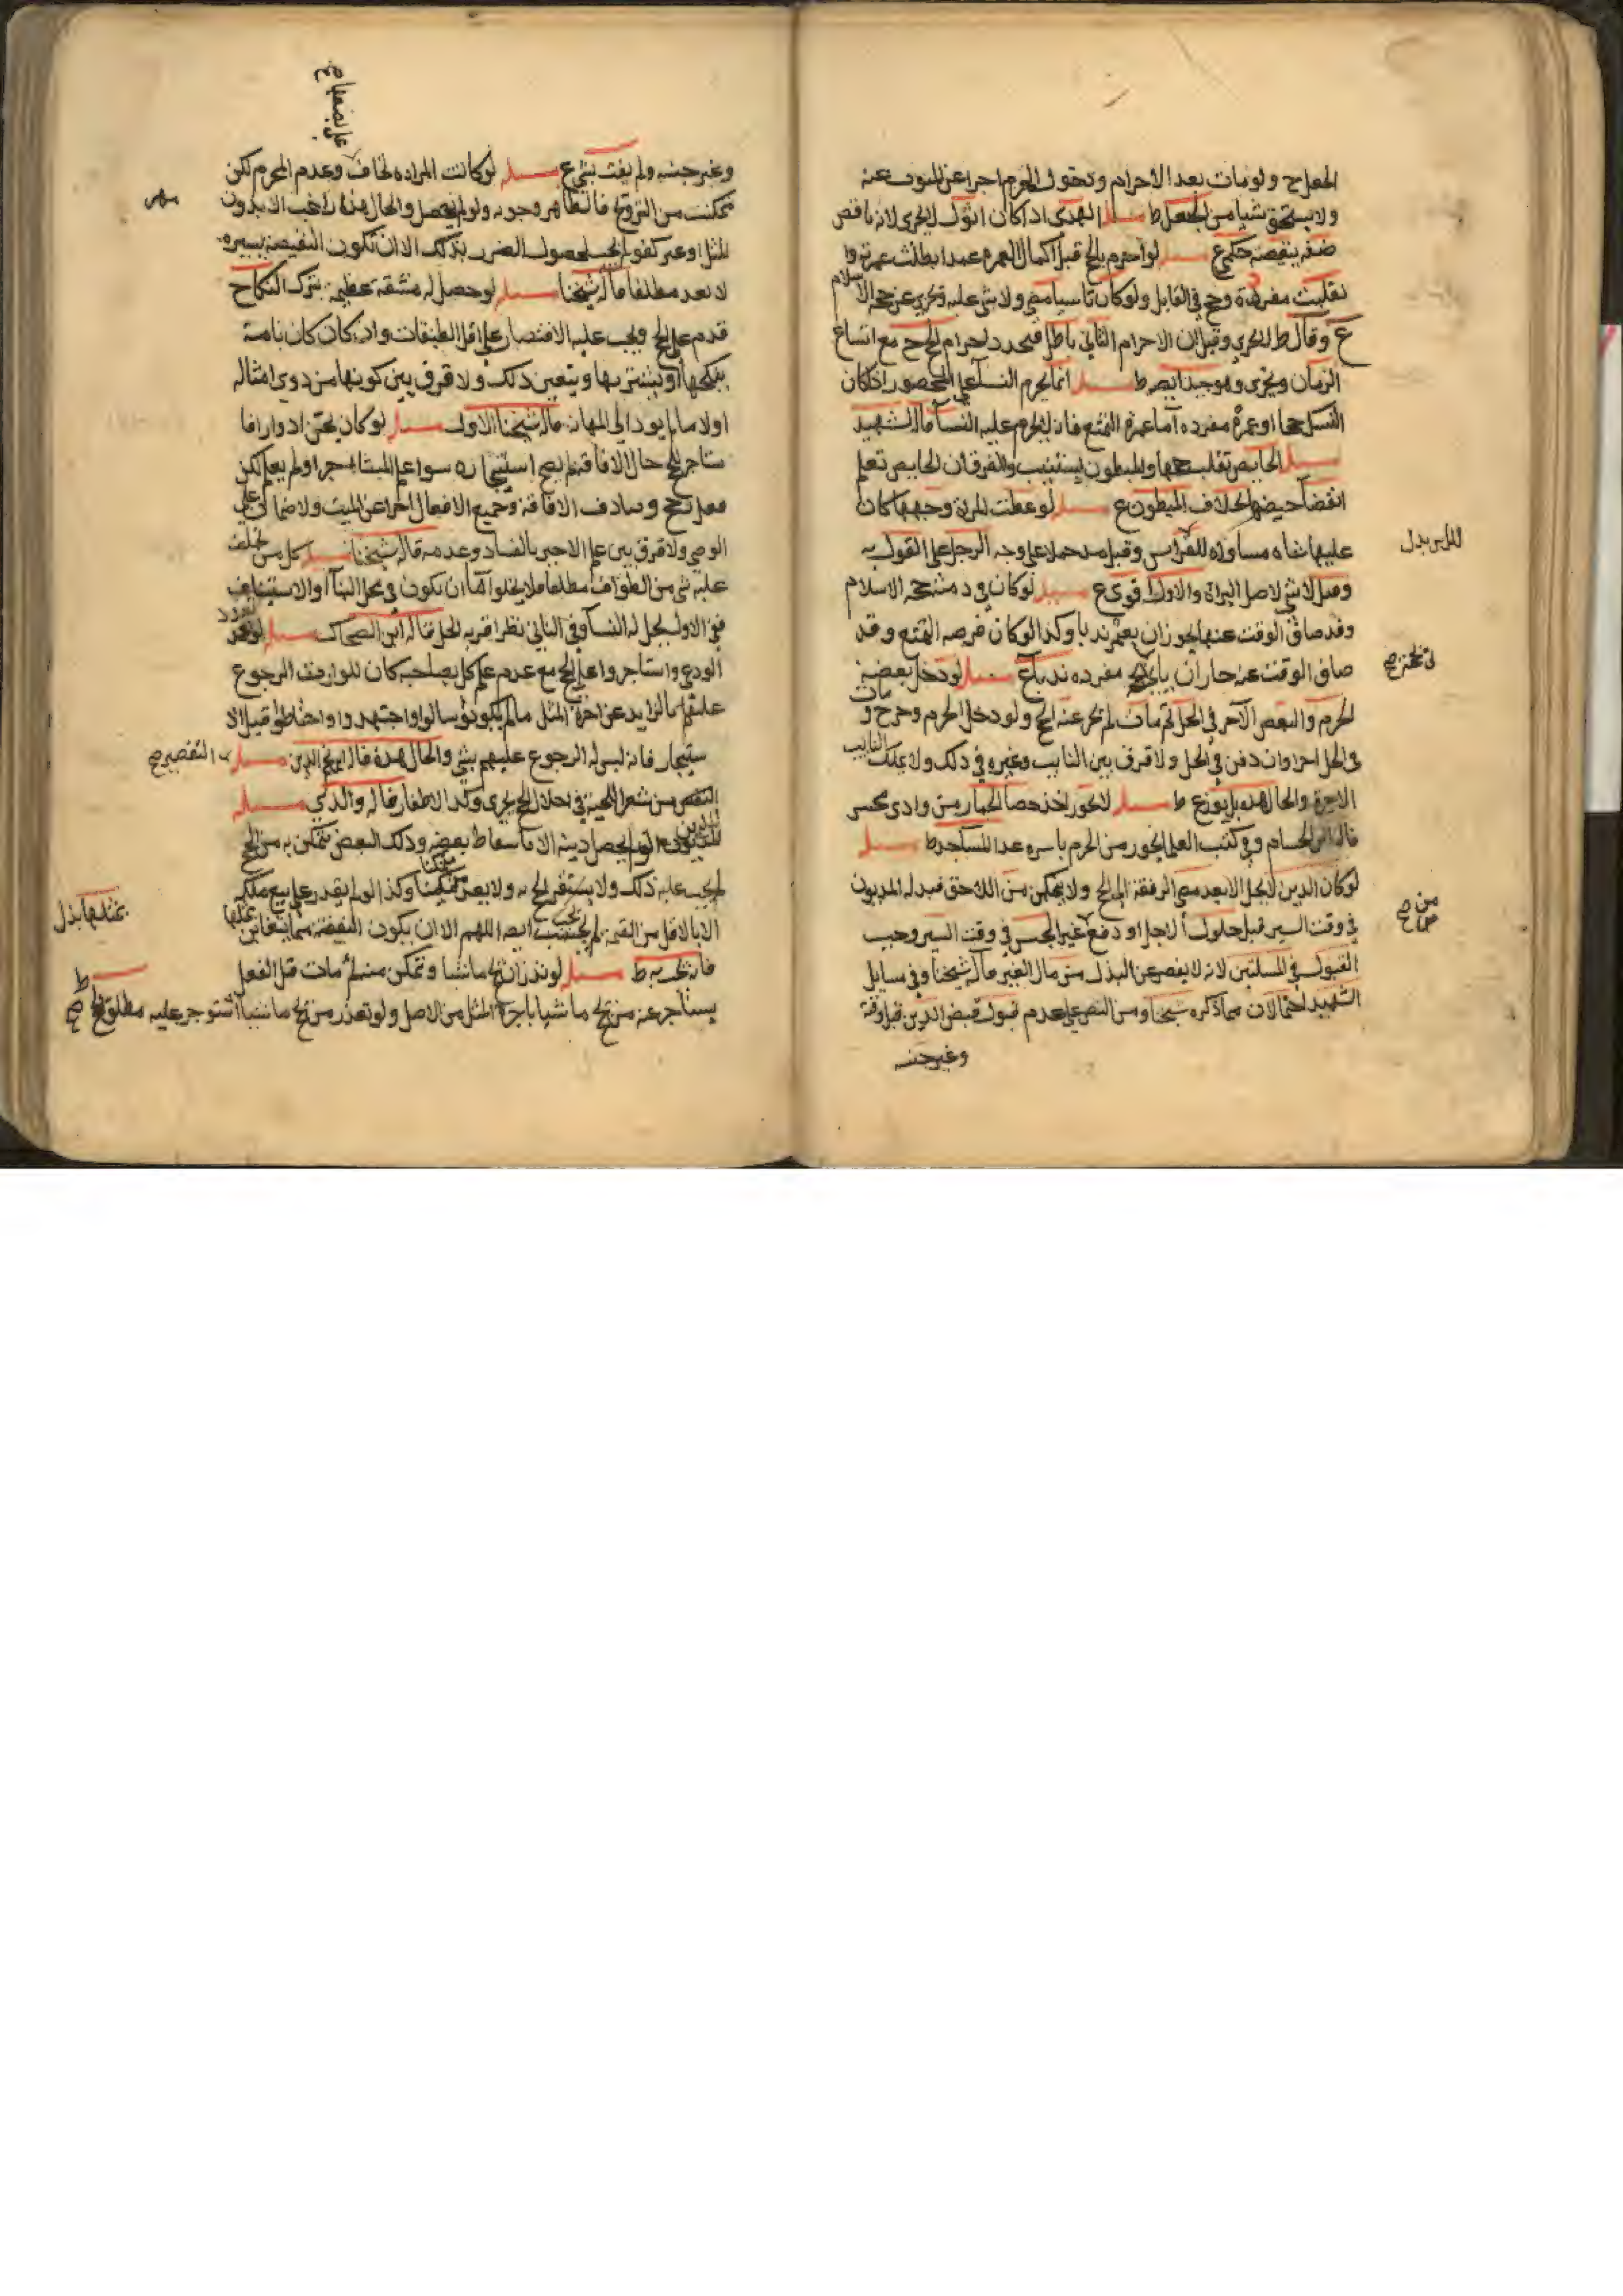 ولو مات بعد الاحرام ودخول الحرم اجزا عن المنوب عنه
ولا يستحق شيا من الجعل ط مسله الهدي اذا كان اثول لا يجزي لانه ناقص
صفه ينقصه حكم ع مسله لو احرم بالحج قبل اكمال العمره عمدا بطلت عمرته وا
نقلبت مفردة وحج في القابل ولو كان ناسيا مضى ولا شي عليه وتجزي عن حجة الاسلام
ع وقال ط لا يجزي وقيل ان الاحرام الثاني باطل فيجدد احرام الحج مع اتساع
الزمان ويجزي وهو جيد ايضا ط مسله انما يحرم النسا على المحصور اذا كان
النسك حجا او عمرة مفرده اما عمرة التمتع فانه لا يحرم عليه النسا قاله الشهيد
مسله الحايض تقلب حجها والمبطون يستنيب والفرق ان الحايض تعلم
انقضا حيضها بخلاف المبطون ع مسله لو غطت المراة وجهها كان
عليها شاه مساواه للراس وقيل مد حملا على وجه الرجل على القول به
وقيل لا شي لاصل البراة والاول اقوى ع مسله لو كان في ذمته حجة الاسلام
وقد ضاق الوقت عنها يجوز ان يعتمر ندبا وكذا لو كان فرضه التمتع وقد
ضاق الوقت عنه جاز ان ياتي بحجة مفرده ندبا ع مسله لو دخل بعضه
الحرم والبعض الآخر في الحل ثم مات لم يجز عنه الحج ولو دخل الحرم وخرج و مات
في الحل اجزا وان دفن في الحل ولا فرق بين النايب وغيره في ذلك ولا يملك النايب
الاجرة والحال هذه بل يوزع ط مسله لا يجوز اخذ حصا الجمار من وادي محسر
قاله ابن الحسام وفي كتب العلما يجوز من الحرم باسره عدا المساجد ط مسله
لو كان الدين لا يحل الا بعد مضي الرفقة الى الحج ولا يتمكن من اللاحق فبدله المديون
في وقت السير قبل حلول الاجل او دفع غير الجنس في وقت السير وجب
القبول في المسلتين لانه لا يقصر عن البذل من مال الغير قاله شيخنا وفي مسايل
الشهيد احتمالان مما ذكره شيخنا ومن النص على عدم قبول قبض الدين قبل وقته
وغير جنسه
في نحتر ح
من ح
وغير جنسه ولم يفت بشي ع مسله لو كانت المراه تخاف وعدم المحرم لكن
تمكنت من التزويج فالظاهر وجوبه ولو لم يحصل والحال هذه راغب الا بدون
المثل او غير كفو لم يجب لحصول الضرر بذلك الا ان تكون النقيصة يسيره
لا تعد مطلقا قاله شيخنا مسله لو حصل له مشقة عظيمه بترك النكاح
قدم على الحج ويجب عليه الاقتصار على اقل الطبقات وان كان كان بامة
ينكحها او يشتريها ويتعين ذلك ولا فرق بين كونها من ذوي امثاله
اولا ما لم يود الى المهانه قاله شيخنا الاول مسله لو كان يجن ادوارا فا
ستاجر للحج حال الافاقه لم يصح استيجاره سوا علم المستاجر او لم يعلم لكن
فعل الحج وصادف الافاقة وجميع الافعال اجزا عن الميت ولا ضمان على
الوصي ولا فرق بين علم الاجير بالفساد وعدمه قاله شيخنا مسله كل من تخلف
عليه شي من الطواف مطلقا فلا يخلوا اما ان تكون في محل البنا او الاستيناف
ففي الاول يحل له النسا وفي الثاني نظر اقربه الحل قاله ابن الضحاك مسله لو تعدد
الودعي واستاجروا على الحج مع عدم علم كل بصاحبه كان للوارث الرجوع
عليهم بما الزايد عن اجرة المثل ما لم يكونوا سالوا واجتهدوا واحتاطوا قبل الا
ستيجار فانه ليس له الرجوع عليهم بشي والحال هذه قاله ابو فخر الدين مسله
التقصير ح
التقصير من شعر اللحية في احلال الحج يجزي وكذا الاظفار قاله والذي مسله
المديون لو لم يحصل دينه الا باسقاط بعضه وذلك البعض يتمكن به من الحج
لم يجب عليه ذلك ولا يستقر الحج به ولا يصير متمكنا وكذا لو لم يقدر على بيع ملكه
الا بالاقل من القيمه لم يجب ايضا اللهم الا ان يكون النقيصة مما يتغابن بمثلها
فانه يجب به ط مسله لو نذر ان يحج ماشيا وتمكن منه ثم مات قبل الفعل
يستاجر عنه من يحج ماشيا باجرة المثل من الاصل ولو تعذر من يحج ماشيا استوجر عليه مطلق الحج